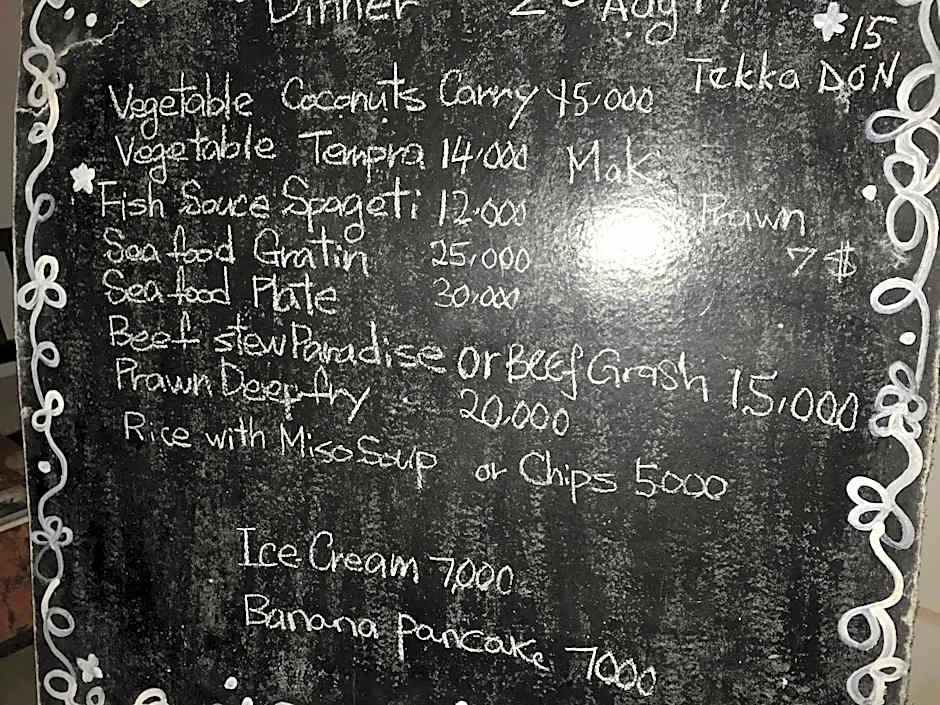 Dinner 2 Aug 17
15
Tekka DON
Vegetable Coconuts Carry 15,000
Vegetable Tempra 14,000 Mak
Fish Sauce Spageti 12,000 Prawn
Sea food Gratin 25,000 7$
Sea food Plate 30,000
Beef stew Paradise or Beef Grash 15,000
Prawn Deep fry 20,000
Rice with Miso Soup or Chips 5000
Ice Cream 7,000
Banana pancake 7000